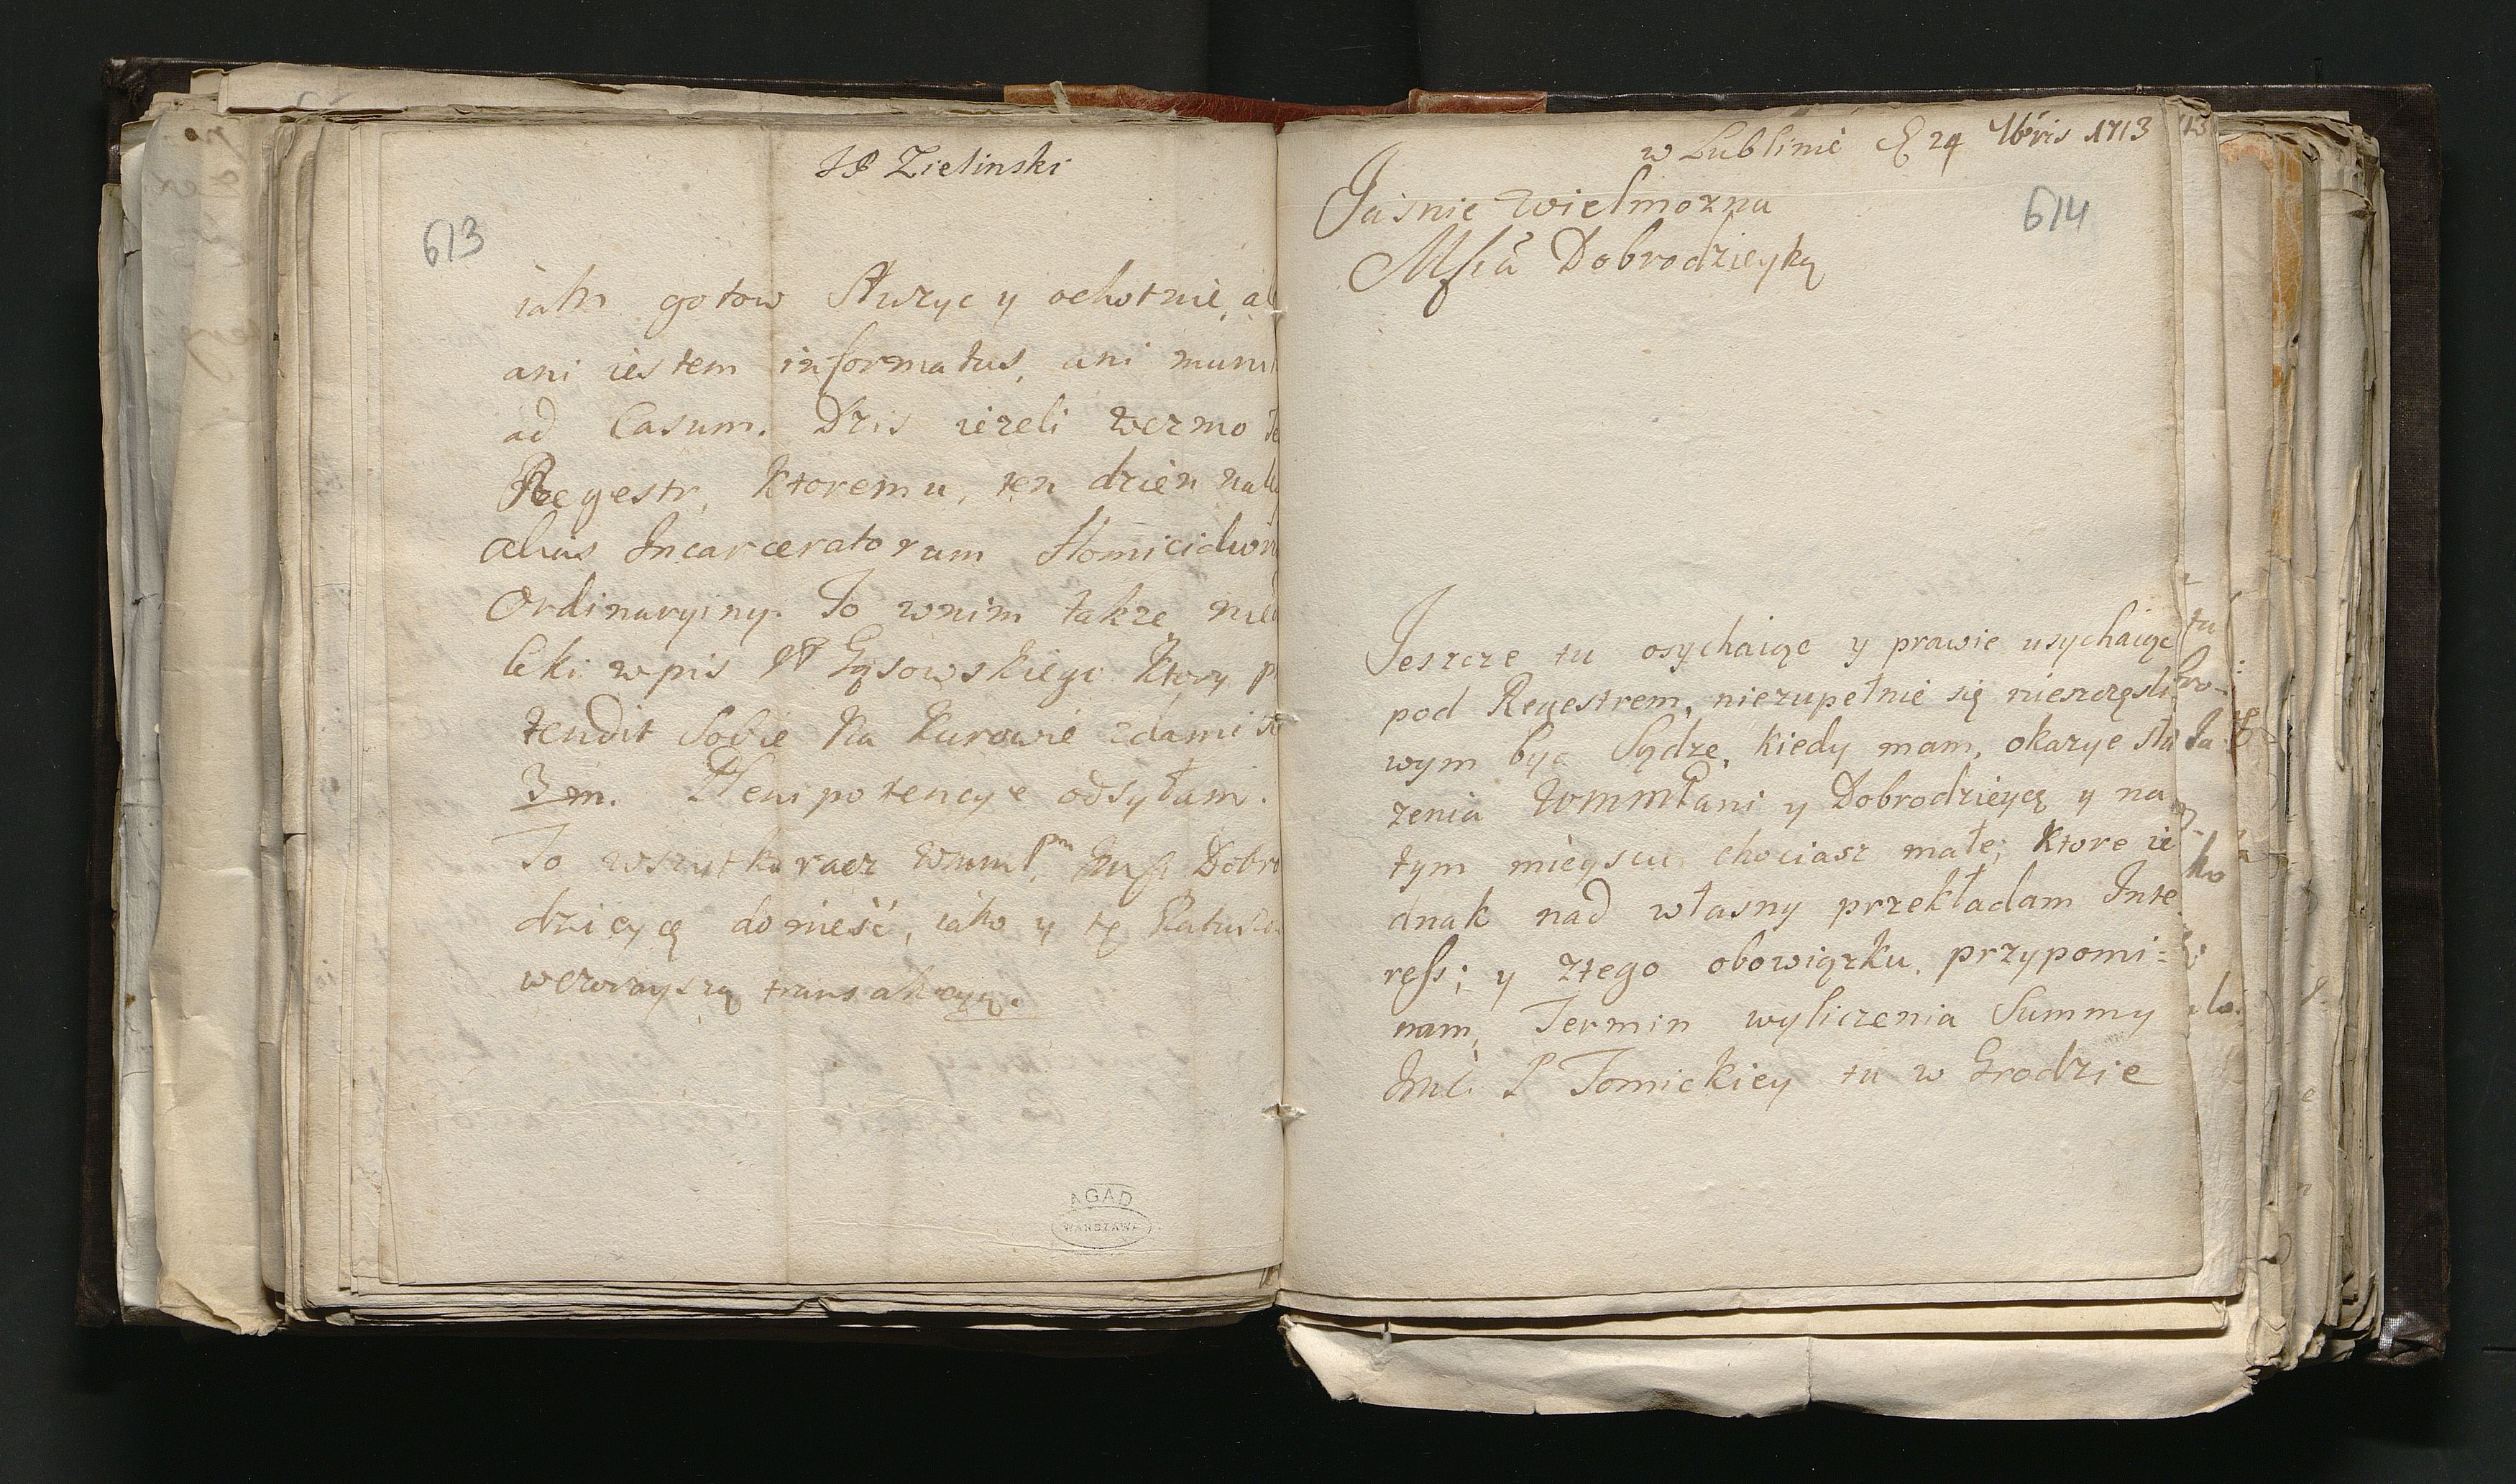 JP Zielinski
613
iako gotow Służyc y ochotnie, al
ani iestem informatus, ani muni
ad Casum. Dzis ieżeli wezmo Te
Regestr, ktoremu, ten dzien nale
alias Incarceratorum Homicidior
Ordinaryiny. To wnim także nied
leki wpis JP Gąsowskiego Ktory p
tendit Sobie na Kurowie zdami
3 m. Plenipotencye odsyłam.
To wszytko racz Dobro
dzieycę donieść, iako y tę Ratuszo
wczorayszą transakcyą.
AGAD
WARSZAWA
w Lublinie D 24 1713
614
Jasnie Wielmozna
Mscia Dobrodzieyką
Jeszcze tu osychaiąc y prawie usychaiąc
pod Regestrem, niezupełnie się nieszczęśli
wym być Sądzę, kiedy mam, okazye słu
zenia WMMPani y Dobrodzieycą y na
tym mieyscu chociasz małe; Ktore ie
dnak nad własny przekładam Inte
ress; y ztego obowiązku, przypomi=
nam, Termin wyliczenia Summy
Jmć. P Tomickiey tu w Grodzie